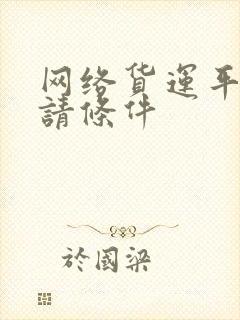 网络货運平
請條件
於國梁